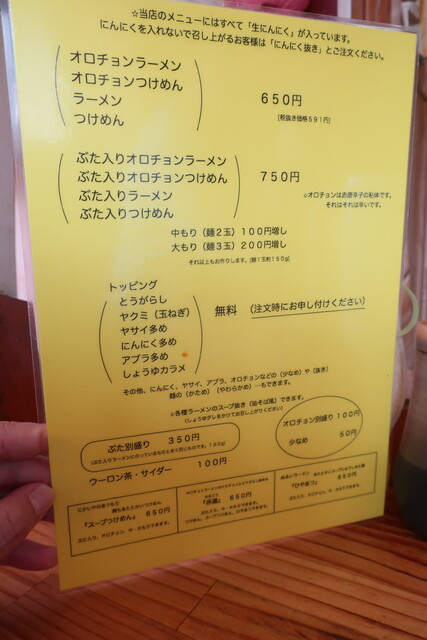 ☆当店のメニューにはすべて「生にんにく」が入っています。
にんにくを入れないで召し上がるお客様は「にんにく抜き」とご注文ください。
オロチョンラーメン
オロチョンつけめん
ラーメン
つけめん
650円
[税抜き価格591円]
ぶた入りオロチョンラーメン
ぶた入りオロチョンつけめん
ぶた入りラーメン
ぶた入りつけめん
750円
☆オロチョンは赤唐辛子の粘体です。
それはそれは辛いです。
中もり（麺2玉）100円増し
大もり（麺3玉）200円増し
それ以上もお作りします。[麺1玉約150g]
トッピング
とうがらし
ヤクミ（玉ねぎ）
ヤサイ多め
にんにく多め
アブラ多め
しょうゆカラメ
無料 （注文時にお申し付けください）
その他、にんにく、ヤサイ、アブラ、オロチョンなどの（少なめ）や（抜き）
麺の（かため）（やわらかめ）…もできます。
☆各種ラーメンのスープ抜き（油そば風）できます。
（しょうゆダレをかけてお召し上がりください）
ぶた別盛り 350円
オロチョン別盛り 100円
少なめ 50円
ウーロン茶・サイダー 100円
『スープつけめん』 650円
ぶた入り、オロチョン、中・大もりできます。
650円
『ひやあつ』 650円